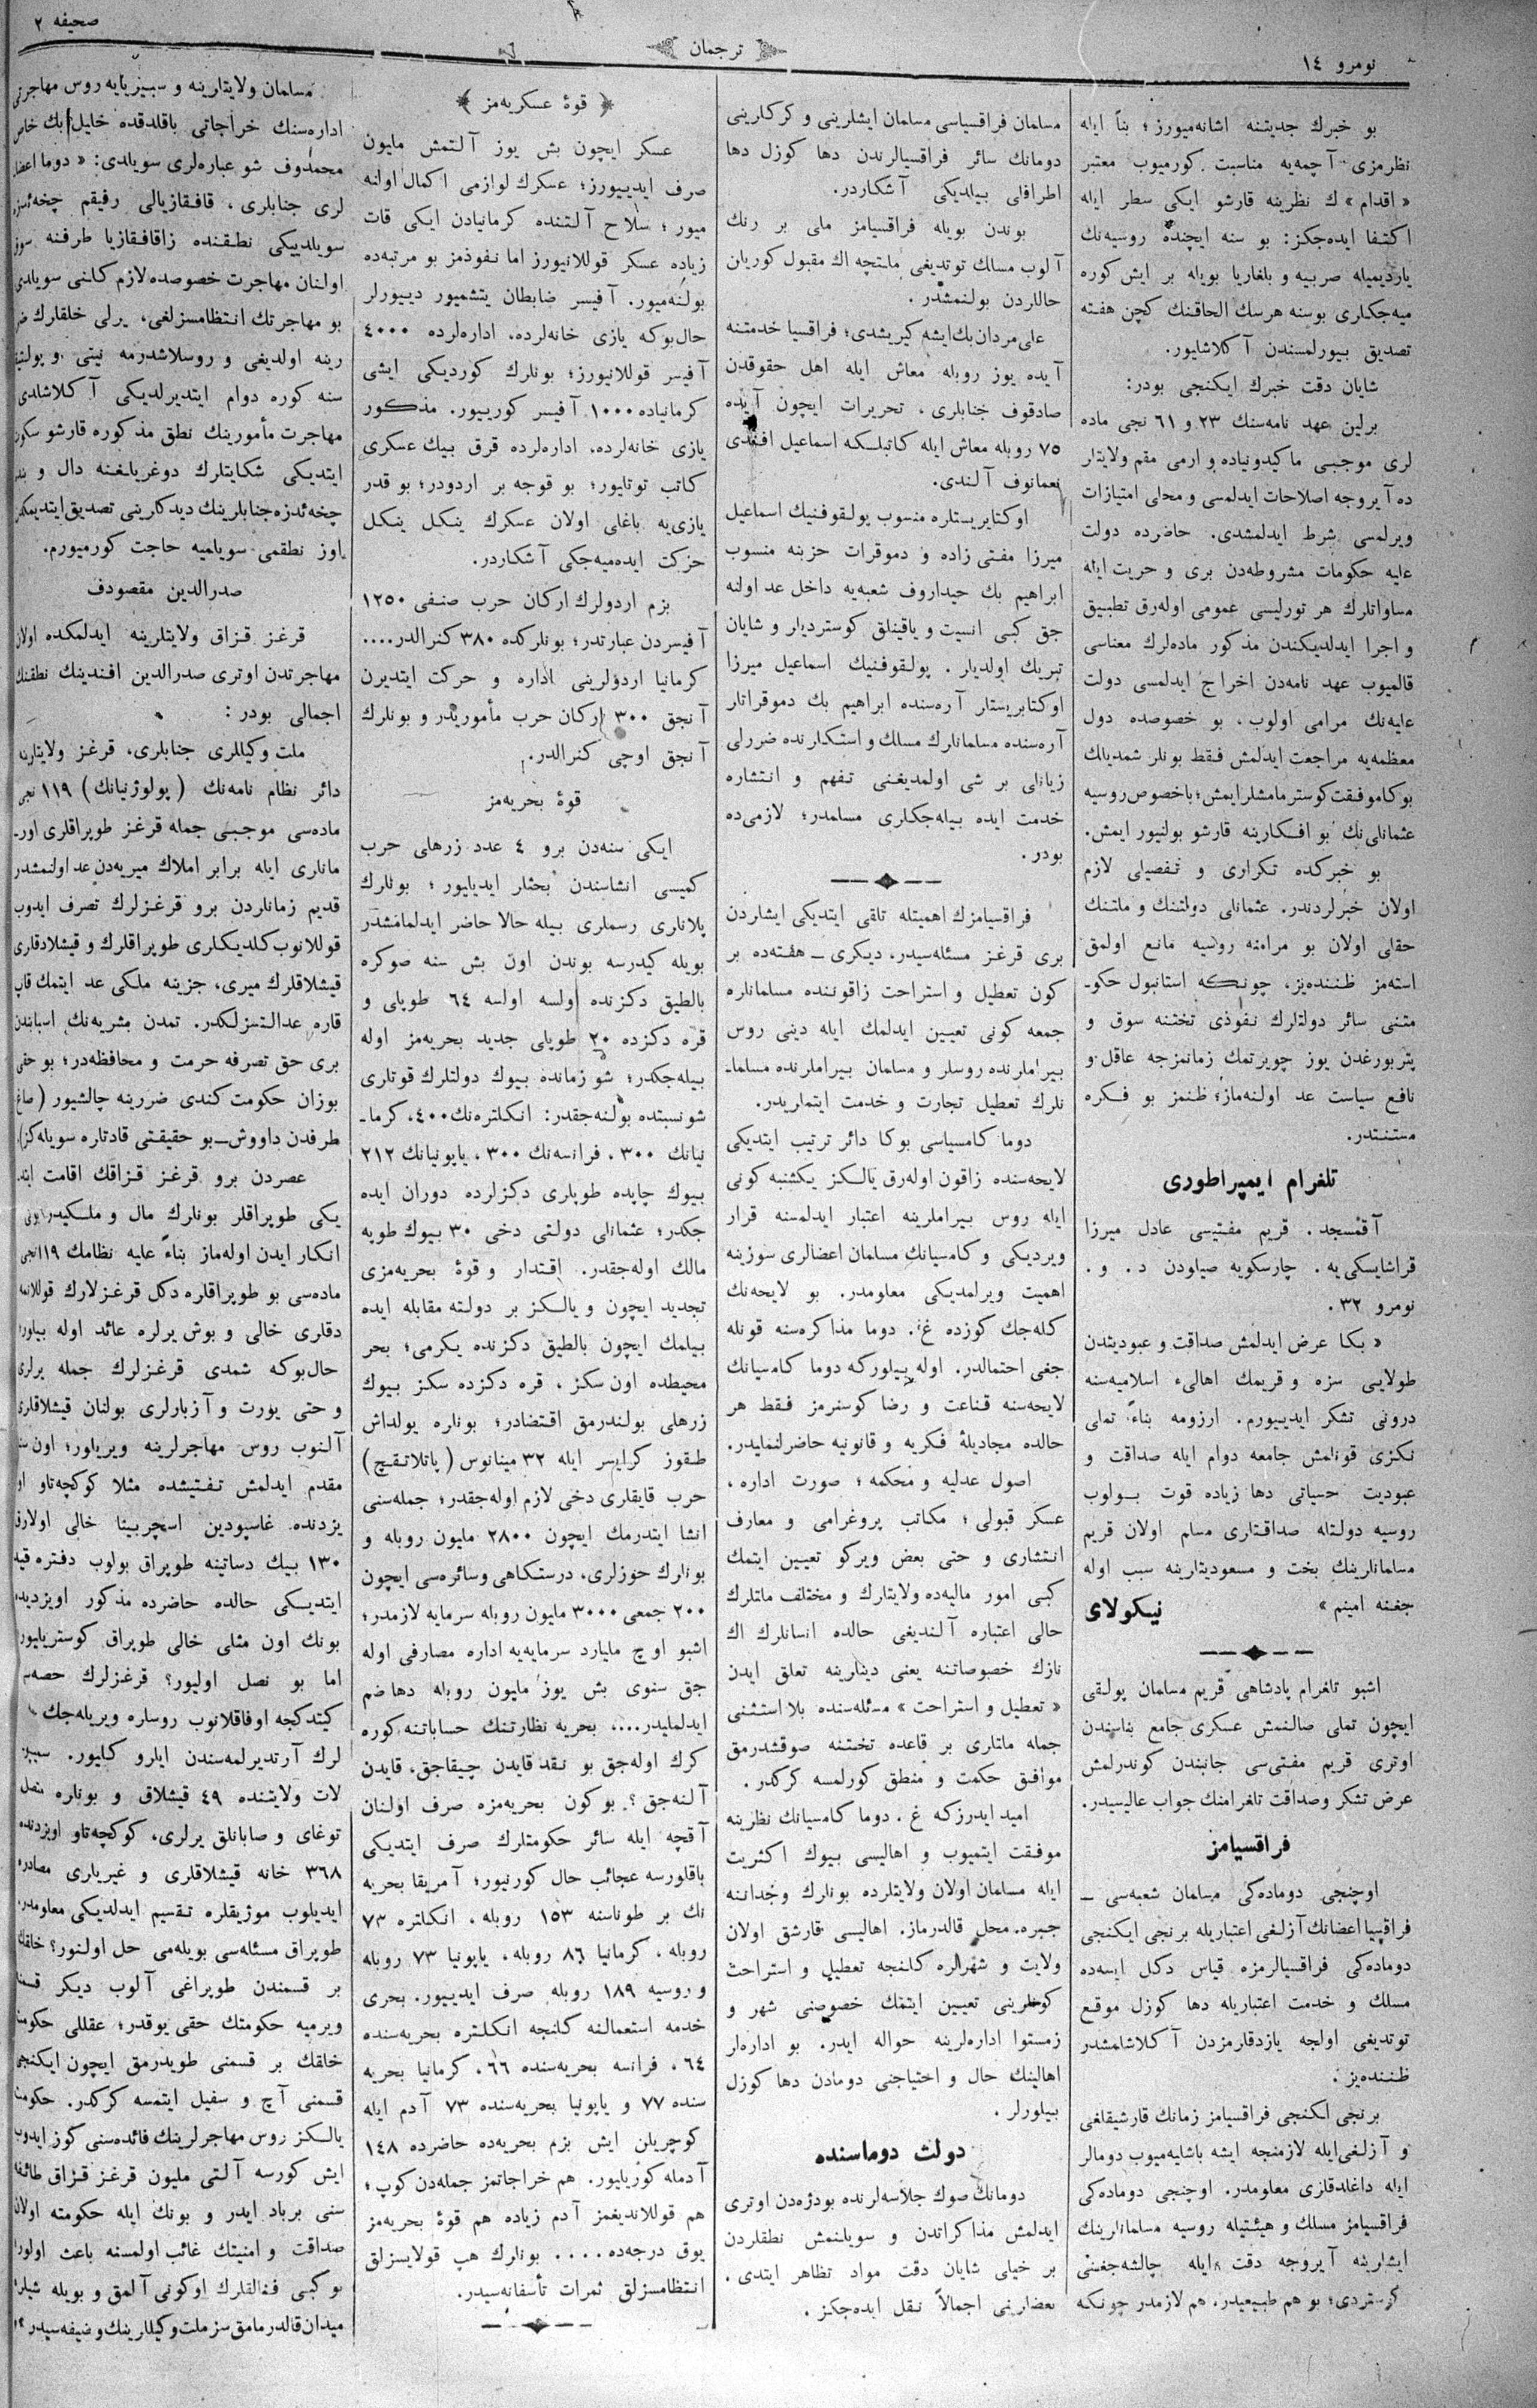 نومرو ١٤
ترجمان
صحیفه ٢
بو خبرك جدیتنه اشانه‌میورز؛ بناً ایله
نظرمزی آچمه‌یه مناسبت كورمیوب معتبر
« اقدام » ك نظرینه قارشو ایكی سطر ایله
اكتفا ایده‌جكز: بو سنه ایچنده روسیه‌نك
یاردیمیله صربیه و بلغاریا بویله بر ایش كوره
میه‌جكلری بوسنه هرسك الحاقنك كچن هفته
تصدیق بیورلمسندن آكلاشلیور.
شایان دقت خبرك ایكنجی بودر:
برلین عهد نامه‌سنك ٢٣ و ٦١ نجی ماده
لری موجبی ماكیدونیاده و ارمی مقم ولایتلر
ده آیروجه اصلاحات ایدلمسی و محلی امتیازات
ویرلمسی شرط ایدلمشدی. حاضرده دولت
علیه حكومات مشروطه‌دن بری و حریت ایله
مساواتلرك هر تورلیسی عمومی اوله‌رق تطبیق
و اجرا ایدلدیكندن مذكور ماده‌لرك معناسی
قالمیوب عهد نامه‌دن اخراج ایدلمسی دولت
علیه‌نك مرامی اولوب، بو خصوصده دول
معظمه‌یه مراجعت ایدلمش فقط بونلر شمدیلك
بوكا موفقت كوسترمامشلر ایمش؛ باخصوص روسیه
عثمانلی‌نك بو افكارینه قارشو بولنیور ایمش.
بو خبركده تكراری و تفصیلی لازم
اولان خبرلردندر. عثمانلی دولتنك و ملتنك
حقلی اولان بو مرامنه روسیه مانع اولمق
استه‌مز ظننده‌یز، چونكه استانبول حكو-
متنی سائر دولتلرك نفوذی تختنه سوق و
پتربورغدن یوز چویرتمك زمانمزجه عاقل و
نافع سیاست عد اولنه‌ماز؛ ظنمز بو فكره
مستنددر.
تلغرام ایمپراطوری
آقمسجد. قریم مفتیسی عادل میرزا
قراشایسكی‌یه. چارسكویه صیلودن د. و.
نومرو ٣٢.
« بكا عرض ایدلمش صداقت و عبودیتدن
طولایی سزه و قریمك اهالیء اسلامیه‌سنه
درونی تشكر ایدیبورم. ارزومه بناءً تملی
نكزی قونلمش جامعه دوام ایله صداقت و
عبودیت حسیاتی دها زیاده قوت بولوب
روسیه دولتله صداقتلری مسلم اولان قریم
مسلمانلرینك بخت و مسعودیتلرینه سبب اوله
جغنه امینم » نیكولای
اشبو تلغرام پادشاهی قریم مسلمان پولقی
ایچون تملی صالنمش عسكری جامع بناسندن
اوتری قریم مفتی‌سی جانبندن كوندرلمش
عرض تشكر وصداقت تلغرامنك جواب عالیسیدر.
فراقسیامز
اوچنجی دوماده‌كی مسلمان شعبه‌سی —
فراقسیا اعضانك آزلغی اعتباریله برنجی ایكنجی
دوماده‌كی فراقسیالرمزه قیاس دكل ایسه‌ده
مسلك و خدمت اعتباریله دها كوزل موقع
توتدیغی اولجه یازدقارمزدن آكلاشلمشدر
ظننده‌یز.
برنجی ایكنجی فراقسیامز زمانك قارشیقلغی
و آزلغی ایله لازمنجه ایشه باشلیه‌میوب دومالر
ایله داغلدقلری معلومدر. اوچنجی دوماده‌كی
فراقسیامز مسلك و هیئتیله روسیه مسلمانلرینك
ایشلرینه آیروجه دقت ایله چالشه‌جغنی
كوستردی؛ بو هم طبیعیدر. هم لازمدر چونكه
مسلمان فراقسیاسی مسلمان ایشلرینی و كركلرینی
دومانك سائر فراقسیالرندن دها كوزل دها
اطرافلی بیلدیكی آشكاردر.
بوندن بویله فراقسیامز ملی بر رنك
آلوب مسلك توتدیغی ملتچه اك مقبول كوریلن
حاللردن بولنمشدر.
علی مردان بك ایشه كیریشدی؛ فراقسیا خدمتنه
آیده یوز روبله معاش ایله اهل حقوقدن
صادقوف جنابلری، تحریرات ایچون آیده
٧٥ روبله معاش ایله كاتبلكه اسماعیل افندی
نعمانوف آلندی.
اوكتابریستلره منسوب پولقوفنیك اسماعیل
میرزا مفتی زاده و دموقرات حزبنه منسوب
ابراهیم بك حیداروف شعبه‌یه داخل عد اولنه
جق كبی انسیت و یاقینلق كوستردیلر و شایان
تبریك اولدیلر. پولقوفنیك اسماعیل میرزا
اوكتابریستلر آره‌سنده ابراهیم بك دموقراتلر
آره‌سنده مسلمانلرك مسلك و استكلرنده ضررلی
زیانلی بر شی اولمدیغنی تفهم و انتشاره
خدمت ایده بیله‌جكلری مسلمدر؛ لازمی‌ده
بودر.
فراقسیامزك اهمیتله تلقی ایتدیكی ایشلردن
بری قرغز مسئله‌سیدر، دیكری — هفته‌ده بر
كون تعطیل و استراحت زاقوننده مسلمانلره
جمعه كونی تعیین ایدلمك ایله دینی روس
بیراملرنده روسلر و مسلمان بیراملرنده مسلما-
نلرك تعطیل تجارت و خدمت ایتملریدر.
دوما كامسیاسی بوكا دائر ترتیب ایتدیكی
لایحه‌سنده زاقون اوله‌رق یالكز یكشنبه كونی
ایله روس بیراملرینه اعتبار ایدلمسنه قرار
ویردیكی و كامسیانك مسلمان اعضالری سوزینه
اهمیت ویرلمدیكی معلومدر. بو لایحه‌نك
كله‌جك كوزده غ. دوما مذاكره‌سنه قونله
جغی احتمالدر. اوله بیلوركه دوما كامسیانك
لایحه‌سنه قناعت و رضا كوسترمز فقط هر
حالده مجادیلهٔ فكریه و قانونیه حاضرلنمایدر.
اصول عدلیه و محكمه؛ صورت اداره،
عسكر قبولی؛ مكاتب پروغرامی و معارف
انتشاری و حتی بعض ویركو تعیین ایتمك
كبی امور مالیه‌ده ولایتلرك و مختلف ملتلرك
حالی اعتباره آلندیغی حالده انسانلرك اك
نازك خصوصاتنه یعنی دینلرینه تعلق ایدن
« تعطیل و استراحت » مسئله‌سنده بلا استثنی
جمله ملتلری بر قاعده تختنه صوقشدرمق
موافق حكمت و منطق كورلمسه كركدر.
امید ایدرزكه غ. دوما كامسیانك نظرینه
موفقت ایتمیوب و اهالیسی بیوك اكثریت
ایله مسلمان اولان ولایتلرده بونلرك وجداننه
جبره محل قالدرماز. اهالیسی قارشق اولان
ولایت و شهرلره كلنجه تعطیل و استراحت
كونلرینی تعیین ایتمك خصوصنی شهر و
زمستوا اداره‌لرینه حواله ایدر. بو اداره‌لر
اهالینك حال و احتیاجنی دومادن دها كوزل
بیلورلر.
دولت دوماسنده
دومانك صوك جلاسه‌لرنده بودژه‌دن اوتری
ایدلمش مذاكراتدن و سویلنمش نطقلردن
بر خیلی شایان دقت مواد تظاهر ایتدی.
بعضلرینی اجمالاً نقل ایده‌جكز.
قوهٔ عسكریه‌مز
عسكر ایچون بش یوز آلتمش ملیون
صرف ایدییورز؛ عسكرك لوازمی اكمال اولنه
میور؛ سلاح آلتنده كرمانیادن ایكی قات
زیاده عسكر قوللانیورز اما نفوذمز بو مرتبه‌ده
بولنه‌میور. آفیسر ضابطان یتشمیور دییورلر
حال‌بوكه یازی خانه‌لرده، اداره‌لرده ٤٠٠٠
آفیسر قوللانیورز؛ بونلرك كوردیكی ایشی
كرمانیاده ١٠٠٠ آفیسر كورییور. مذكور
یازی خانه‌لرده، اداره‌لرده قرق بیك عسكری
كاتب توتلیور؛ بو قوجه بر اردودر؛ بو قدر
یازی‌یه باغلی اولان عسكرك ینكل ینكل
حركت ایده‌میه‌جكی آشكاردر.
بزم اردولرك اركان حرب صنفی ١٢٥٠
آفیسردن عبارتدر؛ بونلركده ٣٨٠ كنرالدر....
كرمانیا اردولرینی اداره و حركت ایتدیرن
آنجق ٣٠٠ اركان حرب مأموریدر و بونلرك
آنجق اوچی كنرالدر.
قوهٔ بحریه‌مز
ایكی سنه‌دن برو ٤ عدد زرهلی حرب
كمیسی انشاسندن بحثلر ایدیلیور؛ بونلرك
پلانلری رسملری بیله حالا حاضر ایدلمامشدر
بویله كیدرسه بوندن اون بش سنه صوكره
بالطیق دكزنده اولسه اولسه ٦٤ طوپلی و
قره دكزده ٢٠ طوپلی جدید بحریه‌مز اوله
بیله‌جكدر؛ شو زمانده بیوك دولتلرك قوتلری
شو نسبتده بولنه‌جقدر: انكلتره‌نك ٤٠٠، كرما-
نیانك ٣٠٠، فرانسه‌نك ٣٠٠، یاپونیانك ٢١٢
بیوك چاپده طوپلری دكزلرده دوران ایده
جكدر؛ عثمانلی دولتی دخی ٣٠ بیوك طوپه
مالك اوله‌جقدر. اقتدار و قوهٔ بحریه‌مزی
تجدید ایچون و یالكز بر دولته مقابله ایده
بیلمك ایچون بالطیق دكزنده یكرمی؛ بحر
محیطده اون سكز، قره دكزده سكز بیوك
زرهلی بولندرمق اقتضادر؛ بونلره یولداش
طقوز كرایسر ایله ٣٢ مینانوس (پاتلاتقیچ)
حرب قایقلری دخی لازم اوله‌جقدر؛ جمله‌سنی
انشا ایتدرمك ایچون ٢٨٠٠ ملیون روبله و
بونلرك حوزلری، درستكاهی وسائره‌سی ایچون
٢٠٠ جمعی ٣٠٠٠ ملیون روبله سرمایه لازمدر؛
اشبو اوچ ملیارد سرمایه‌یه اداره مصارفی اوله
جق سنوی بش یوز ملیون روبله دها ضم
ایدلملیدر...، بحریه نظارتنك حساباتنه كوره
كرك اوله‌جق بو نقد قایدن چیقاجق، قایدن
آلنه‌جق؟. بوكون بحریه‌مزه صرف اولنان
آقچه ایله سائر حكومتلرك صرف ایتدیكی
باقلورسه عجائب حال كورنیور؛ آمریقا بحریه
نك بر طوناسنه ١٥٣ روبله، انكلتره ٧٣
روبله، كرمانیا ٨٦ روبله، یاپونیا ٧٣ روبله
و روسیه ١٨٩ روبله صرف ایدییور. بحری
خدمه استعمالنه كلنجه انكلتره بحریه‌سنده
٦٤، فرانسه بحریه‌سنده ٦٦، كرمانیا بحریه
سنده ٧٧ و یاپونیا بحریه‌سنده ٧٣ آدم ایله
كوچریلن ایش بزم بحریه‌ده حاضرده ١٤٨
آدمله كوریلیور. هم خراجاتمز جمله‌دن كوپ؛
هم قوللاندیغمز آدم زیاده هم قوهٔ بحریه‌مز
یوق درجه‌ده.... بونلرك هپ قولایسزلق
انتظامسزلق ثمرات تأسفانه‌سیدر.
مسلمان ولایتلرینه و سبیریایه روس مهاجرتی
اداره‌سنك خراجاتی باقلدقده خلیل بك خاص
محمدوف شو عباره‌لری سویلدی: « دوما اعضا
لری جنابلری، قافقازیالی رفیقم چخه‌ئدزه
سویلدییكی نطقنده زاقافقازیا طرفنه سوق
اولنان مهاجرت خصوصده لازم كلنی سویلدی
بو مهاجرتك انتظامسزلغی، یرلی خلقلرك ضر
رینه اولدیغی و روسلاشدرمه نیتی و پولتیقه
سنه كوره دوام ایتدیرلدیكی آكلاشلدی
مهاجرت مأمورینك نطق مذكوره قارشو سكوت
ایتدیكی شكایتلرك دوغریلغنه دال و
چخه‌ئدزه جنابلرینك دیدكلرینی تصدیق ایتدیمكدر
اوز نطقمی سویلمیه حاجت كورمیورم.
صدرالدین مقصودف
قرغز قزاق ولایتلرینه ایدلمكده اولان
مهاجرتدن اوتری صدرالدین افندینك نطقنك
اجمالی بودر:
ملت وكیللری جنابلری، قرغز ولایتلرینه
دائر نظام نامه‌نك (پولوژنیانك) ١١٩ نجی
ماده‌سی موجبی جمله قرغز طوپراقلری اور-
مانلری ایله برابر املاك میریه‌دن عد اولنمشدر
قدیم زمانلردن برو قرغزلرك تصرف ایدوب
قوللانوب كلدیكلری طوپراقلرك و قیشلادقلری
قیشلاقلرك میری، جزینه ملكی عد ایتمك قاپ
قاره عدالتسزلكدر. تمدن بشریه‌نك اسبابندن
بری حق تصرفه حرمت و محافظه‌در؛ بو حقی
بوزان حكومت كندی ضررینه چالشیور (صاغ
طرفدن داووش — بو حقیقتی قادتلره سویله‌كز).
عصردن برو قرغز قزاقك اقامت ایته
یكی طوپراقلر بونلرك مال و ملكیدر بونی
انكار ایدن اوله‌ماز بناءً علیه نظامك ١١٩ نجی
ماده‌سی بو طوپراقلره دكل قرغزلارك قوللانمه
دقلری خالی و بوش یرلره عائد اوله بیلور
حال‌بوكه شمدی قرغزلرك جمله یرلری
و حتی یورت و آزبارلری بولنان قیشلاقلری
آلنوب روس مهاجرلرینه ویریلور؛ اون سنه
مقدم ایدلمش تفتیشده مثلا كوكچه‌تاو او
یزدنده غاسپودین اسچربینا خالی اولارق
١٣٠ بیك دساتینه طوپراق بولوب دفتره قید
ایتدیكی حالده حاضرده مذكور اویزدیده
بونك اون مثلی خالی طوپراق كوستریلیور
اما بو نصل اولیور؟ قرغزلرك حصه‌سی
كیتدكچه اوفاقلانوب روسلره ویریله‌جك
لرك آرتدیرلمه‌سندن ایلرو كلیور. سیپپا
لات ولایتنده ٤٩ قیشلاق و بونلره متصل
توغای و صابانلق یرلری، كوكچه‌تاو اویزدنده
٣٦٨ خانه قیشلاقلری و غیریلری مصادره
ایدیلوب موژیقلره تقسیم ایدلدیكی معلومدر.
طوپراق مسئله‌سی بویله‌می حل اولنور؟ خلقك
بر قسمندن طوپراغی آلوب دیكر قسمنه
ویرمیه حكومتك حقی یوقدر؛ عقللی حكومت
خلقك بر قسمنی طویدرمق ایچون ایكنجی
قسمنی آچ و سفیل ایتمسه كركدر. حكومت
یالكز روس مهاجرلرینك فائده‌سنی كوز ایدوب
ایش كورسه آلتی ملیون قرغز قزاق طائفه
سنی برباد ایدر و بونك ایله حكومته اولان
صداقت و امنیتك غائب اولمسنه باعث اولور
بو كبی فنالقلرك اوكونی آلمق و بویله شیلره
میدان قالدرمامق سز ملت وكیللرینك وضیفه‌سیدر؟!